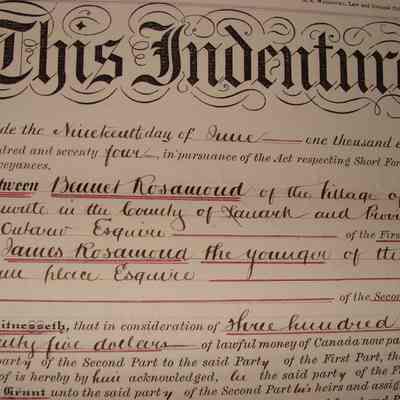 This Indenture
de the Nineteenth day of June one thousand e
dred and seventy four, in pursuance of the Act respecting Short For
veyances.
tween Bennet Rosamond of the Village of
onte in the County of Lanark and Provi
Ontario Esquire of the First
James Rosamond the younger of the
me place Esquire
of the Secon
itnesseth, that in consideration of Three hundred
nty five dollars of lawful money of Canada now pa
party of the Second Part to the said Party of the First Part, the
of is hereby by him acknowledged, he the said party of the F
Grant unto the said party of the Second Part his heirs and assign